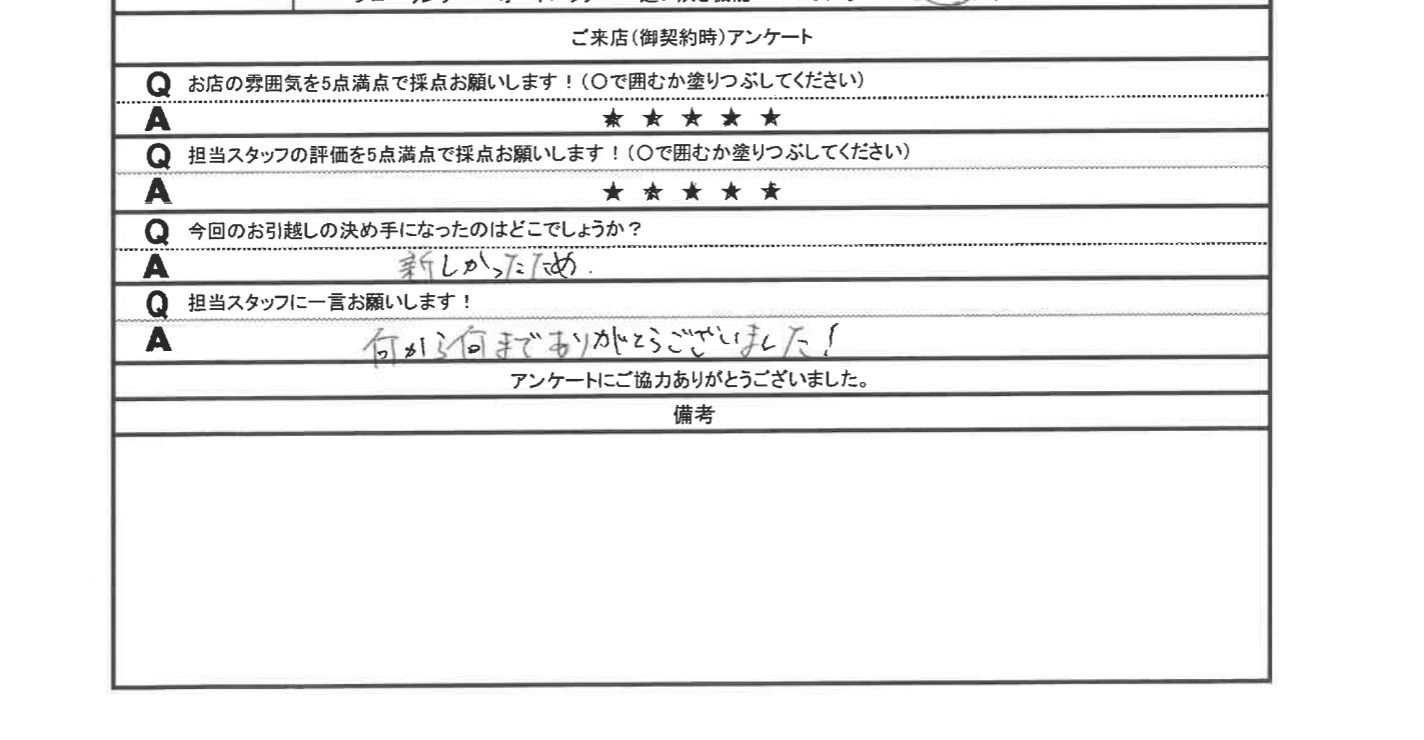 ご来店(御契約時)アンケート
Q お店の雰囲気を5点満点で採点お願いします！(〇で囲むか塗りつぶしてください)
A ★ ★ ★ ★ ★
Q 担当スタッフの評価を5点満点で採点お願いします！(〇で囲むか塗りつぶしてください)
A ★ ★ ★ ★ ★
Q 今回のお引越しの決め手になったのはどこでしょうか？
A 新しかったため.
Q 担当スタッフに一言お願いします！
A 何から何までありがとうございました！
アンケートにご協力ありがとうございました。
備考